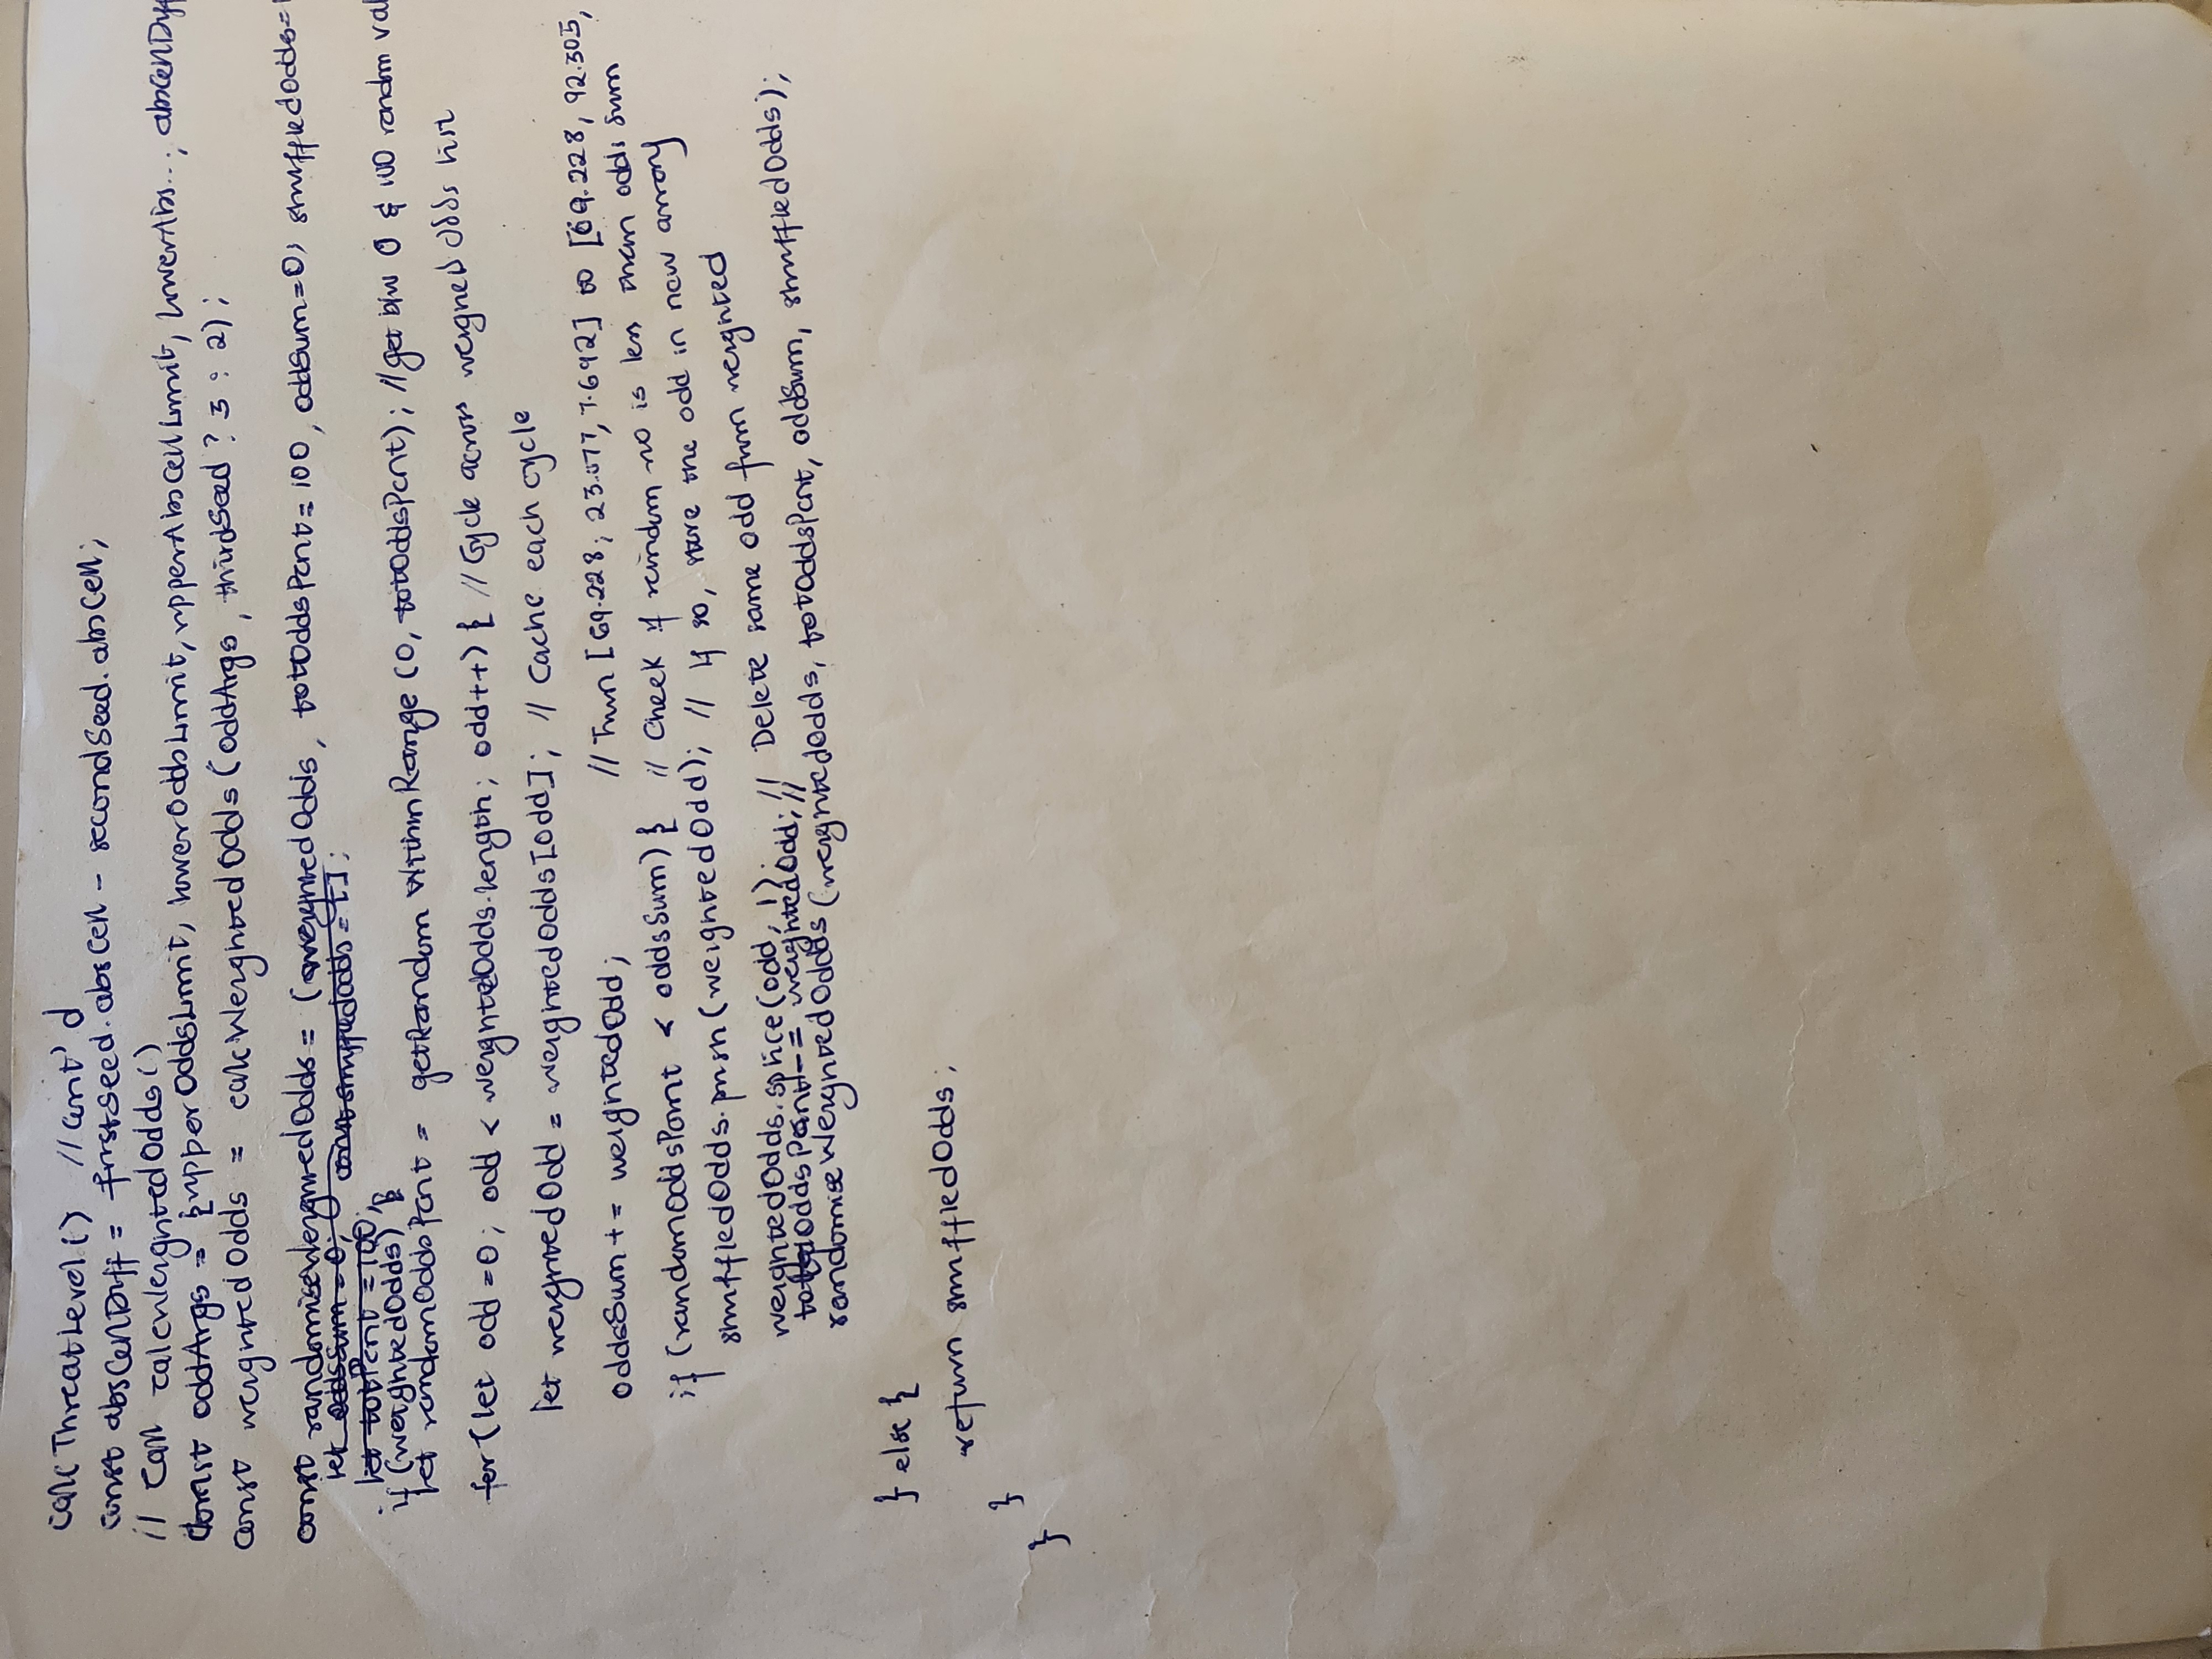 calcThreatLevel() // Cont'd
const absCellDiff = firstSeed.absCell - secondSeed.absCell;
// Call calcWeightedOdds()
const oddArgs = {upperOddsLimit, lowerOddsLimit, upperAbsCellLimit, lowerAbs..., absCellDiff
const weightedOdds = calcWeightedOdds(oddArgs, thirdSeed ? 3 : 2);
const randomiseWeightedOdds = (weightedOdds, totOddsPcnt = 100, oddSum = 0, shuffledOdds =
let oddsSum = 0; const shuffledOdds = [];
let totPcnt = 100;
if (weightedOdds) {
let randomOddsPcnt = getRandomWithinRange(0, totOddsPcnt); // get b/w 0 & 100 random val
for (let odd = 0; odd < weightedOdds.length; odd++) { // Cycle across weighed odds list
let weightedOdd = weightedOdds[odd]; // Cache each cycle
oddsSum += weightedOdd; // Turn [69.228, 23.077, 7.692] to [69.228, 92.305,
if (randomOddsPcnt < oddsSum) { // Check if random no is less than odds sum
shuffledOdds.push(weightedOdd); // If so, store the odd in new array
weightedOdds.splice(odd, 1); // Delete same odd from weighted
OddsPcnt -= weightedOdd; //
randomiseWeightedOdds (weightedOdds, totOddsPcnt, oddSum, shuffledOdds);
} else {
return shuffledOdds;
}
}